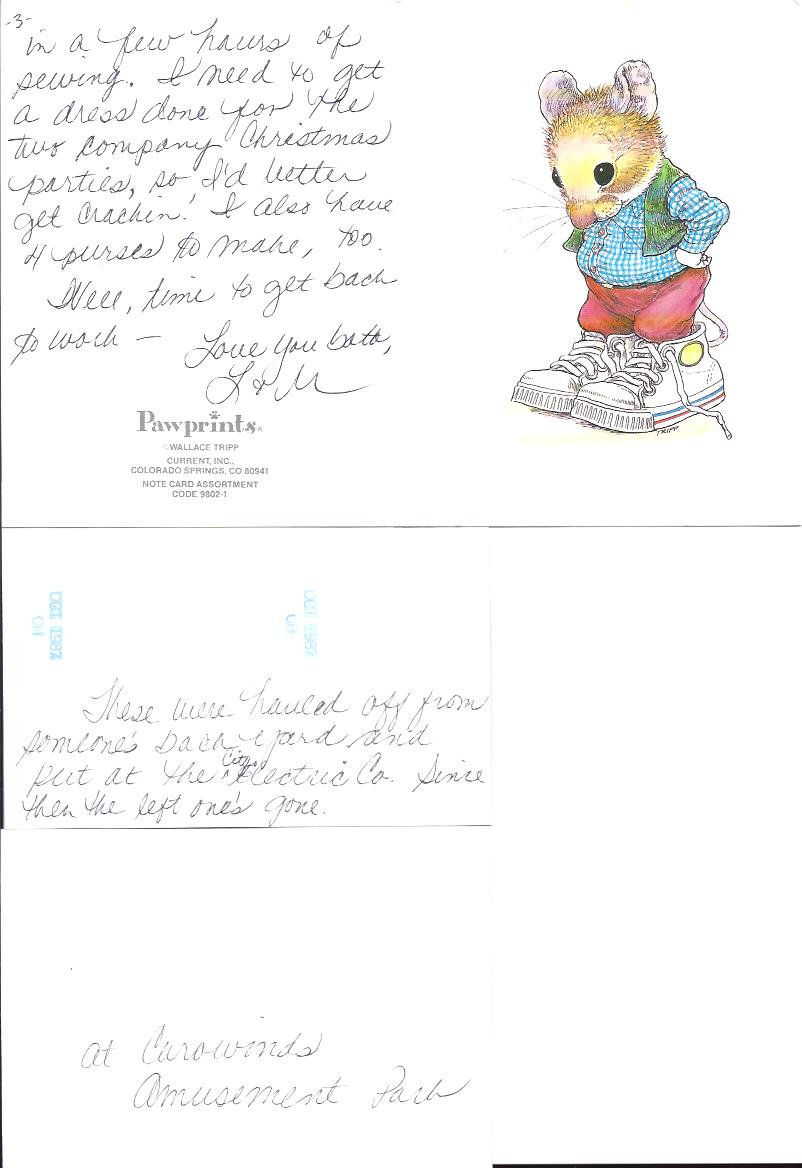 -3-
in a few hours of
sewing. I need to get
a dress done for the
two company Christmas
parties, so I'd better
get crackin'! I also have
4 purses to make, too.
Well, time to get back
to work — Love you both,
L & M
Pawprints®
©WALLACE TRIPP
CURRENT, INC.,
COLORADO SPRINGS, CO 80941
NOTE CARD ASSORTMENT
CODE 9802-1
TRIPP
OCT 1987
CH
OCT 1987
CH
These were hauled off from
someone's back yard and
put at the City Electric Co. Since
then the left one's gone.
at Carowinds
Amusement Park